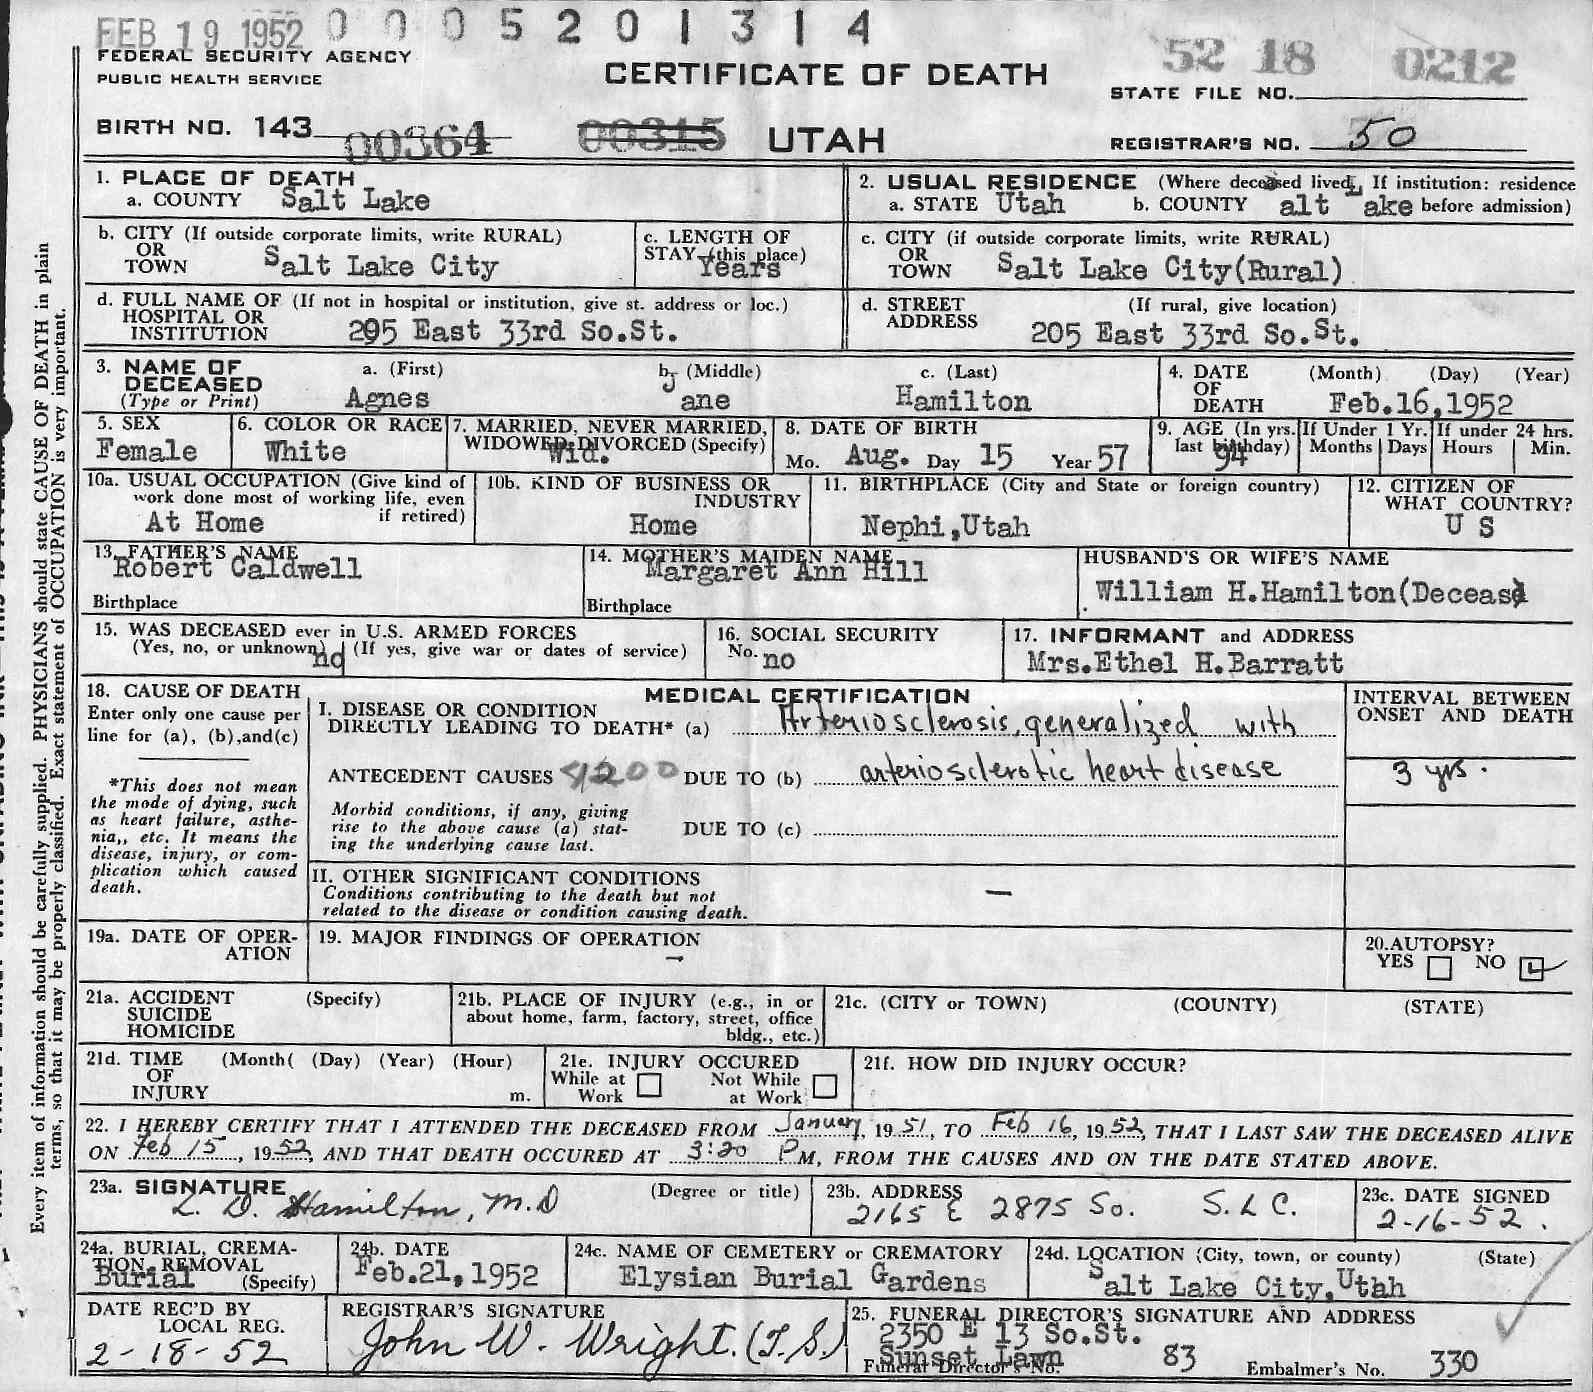 FEB 19 1952 0 0 0 5 2 0 1 3 1 4
FEDERAL SECURITY AGENCY
PUBLIC HEALTH SERVICE
CERTIFICATE OF DEATH
52 18 0212
STATE FILE NO.
BIRTH NO. 143 00364 00315 UTAH
REGISTRAR'S NO. 50
1. PLACE OF DEATH
a. COUNTY Salt Lake
2. USUAL RESIDENCE (Where deceased lived. If institution: residence
a. STATE Utah b. COUNTY alt Lake before admission)
b. CITY (If outside corporate limits, write RURAL)
OR
TOWN Salt Lake City
c. LENGTH OF
STAY (this place)
Years
c. CITY (if outside corporate limits, write RURAL)
OR
TOWN Salt Lake City(Rural)
d. FULL NAME OF (If not in hospital or institution, give st. address or loc.)
HOSPITAL OR
INSTITUTION 295 East 33rd So.St.
d. STREET (If rural, give location)
ADDRESS
205 East 33rd So.St.
3. NAME OF
DECEASED
(Type or Print)
a. (First) b. (Middle) c. (Last)
Agnes Jane Hamilton
4. DATE (Month) (Day) (Year)
OF
DEATH Feb.16,1952
5. SEX
Female
6. COLOR OR RACE
White
7. MARRIED, NEVER MARRIED,
WIDOWED, DIVORCED (Specify)
Wid.
8. DATE OF BIRTH
Mo. Aug. Day 15 Year 57
9. AGE (In yrs.
last birthday)
94
If Under 1 Yr.
Months Days
If under 24 hrs.
Hours Min.
10a. USUAL OCCUPATION (Give kind of
work done most of working life, even
if retired)
At Home
10b. KIND OF BUSINESS OR
INDUSTRY
Home
11. BIRTHPLACE (City and State or foreign country)
Nephi,Utah
12. CITIZEN OF
WHAT COUNTRY?
U S
13. FATHER'S NAME
Robert Caldwell
Birthplace
14. MOTHER'S MAIDEN NAME
Margaret Ann Hill
Birthplace
HUSBAND'S OR WIFE'S NAME
William H.Hamilton(Decease)
15. WAS DECEASED ever in U.S. ARMED FORCES
(Yes, no, or unknown) (If yes, give war or dates of service)
no
16. SOCIAL SECURITY
No. no
17. INFORMANT and ADDRESS
Mrs.Ethel H.Barratt
18. CAUSE OF DEATH
Enter only one cause per
line for (a), (b),and(c)
*This does not mean
the mode of dying, such
as heart failure, asthe-
nia,, etc. It means the
disease, injury, or com-
plication which caused
death.
MEDICAL CERTIFICATION
I. DISEASE OR CONDITION
DIRECTLY LEADING TO DEATH* (a) Arteriosclerosis, generalized with
ANTECEDENT CAUSES 4200 DUE TO (b) arteriosclerotic heart disease
Morbid conditions, if any, giving
rise to the above cause (a) stat-
ing the underlying cause last.
DUE TO (c)
INTERVAL BETWEEN
ONSET AND DEATH
3 yrs.
II. OTHER SIGNIFICANT CONDITIONS
Conditions contributing to the death but not
related to the disease or condition causing death.
—
19a. DATE OF OPER-
ATION
19. MAJOR FINDINGS OF OPERATION
—
20.AUTOPSY?
YES NO
21a. ACCIDENT (Specify)
SUICIDE
HOMICIDE
21b. PLACE OF INJURY (e.g., in or
about home, farm, factory, street, office
bldg., etc.)
21c. (CITY or TOWN) (COUNTY) (STATE)
21d. TIME (Month( (Day) (Year) (Hour)
OF
INJURY m.
21e. INJURY OCCURED
While at Work Not While at Work
21f. HOW DID INJURY OCCUR?
22. I HEREBY CERTIFY THAT I ATTENDED THE DECEASED FROM January, 1951, TO Feb 16, 1952, THAT I LAST SAW THE DECEASED ALIVE
ON Feb 15, 1952, AND THAT DEATH OCCURED AT 3:20 PM, FROM THE CAUSES AND ON THE DATE STATED ABOVE.
23a. SIGNATURE (Degree or title)
L. D. Hamilton, M.D
23b. ADDRESS
2165 E 2875 So. S.L.C.
23c. DATE SIGNED
2-16-52.
24a. BURIAL, CREMA-
TION, REMOVAL
Burial (Specify)
24b. DATE
Feb.21,1952
24c. NAME OF CEMETERY or CREMATORY
Elysian Burial Gardens
24d. LOCATION (City, town, or county) (State)
Salt Lake City,Utah
DATE REC'D BY
LOCAL REG.
2-18-52
REGISTRAR'S SIGNATURE
John W. Wright. (T.S.)
25. FUNERAL DIRECTOR'S SIGNATURE AND ADDRESS
2350 E 13 So.St.
Sunset Lawn
Funeral Director's No. 83 Embalmer's No. 330
Every item of information should be carefully supplied. PHYSICIANS should state CAUSE OF DEATH in plain
terms, so that it may be properly classified. Exact statement of OCCUPATION is very important.